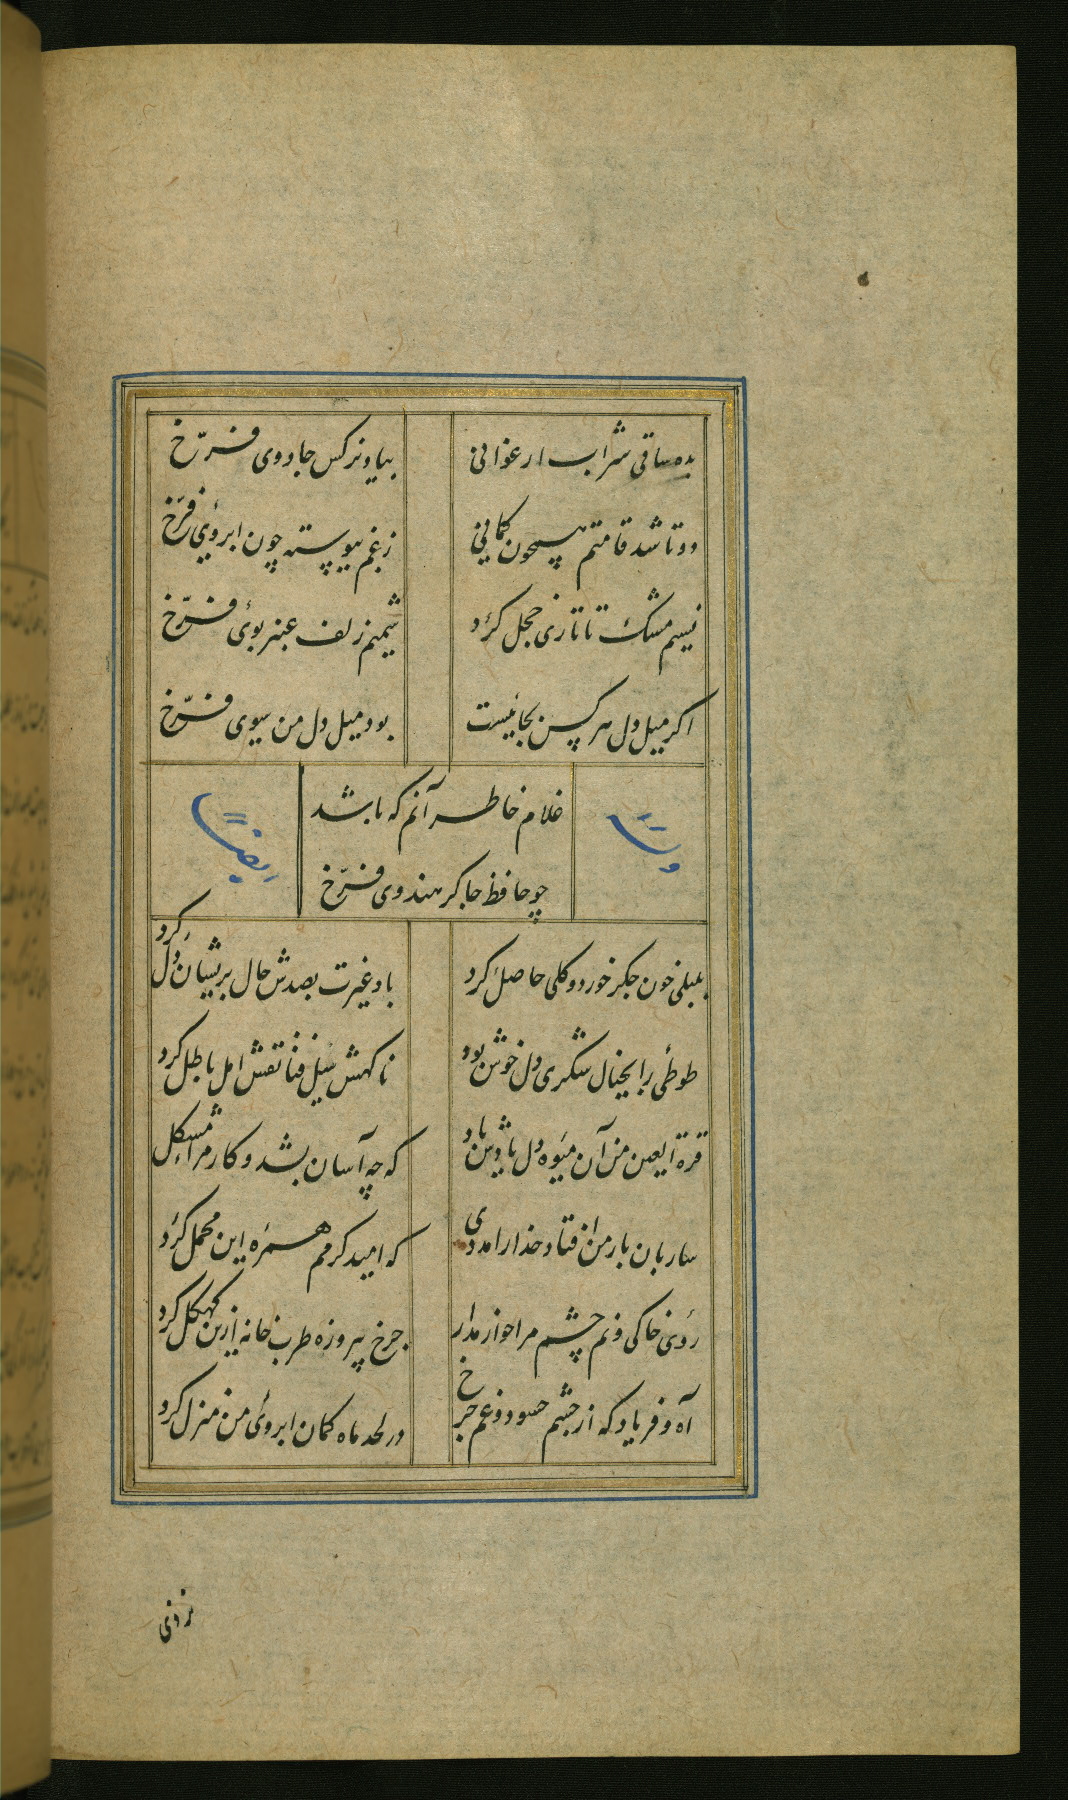 بده ساقی شراب ارغوانی بیاد نرکس جادوی فرّخ
دوتا شد قامتم همچون کمانی زغم پیوسته چون ابروئی فرّخ
نسیم مشک تاتاری خجل کرد شمیم زلف عنبر بوئ فرّخ
اکر میل دل هر کس بجائیست بود میل دل من سوی فرّخ
غلام خاطر آنم که باشد
وله
ایضاً
چو حافظ جاکر هندوی فرّخ
بلبلی خون جکر خورد و کلی حاصل کرد باد غیرت بصدش حال بریشان دل کرد
طوطئی را بخیال شکری دل خوش بود ناکهش سیل فنا نقش امل باطل کرد
قرة العین من آن میوه دل یادش باد که چه آسان بشد و کار مرا مشکل
ساربان بار من افتاد خدارا مددی که امید کرمم همره این محمل کرد
روئی خاکی و نم چشم مرا خوار مدار جرخ پیروزه طرب خانه ازین کهکل کرد
آه و فریاد که از جشم حسود و غم جرخ در لحد ماه کمان ابروئی من منزل کرد
نزدئی